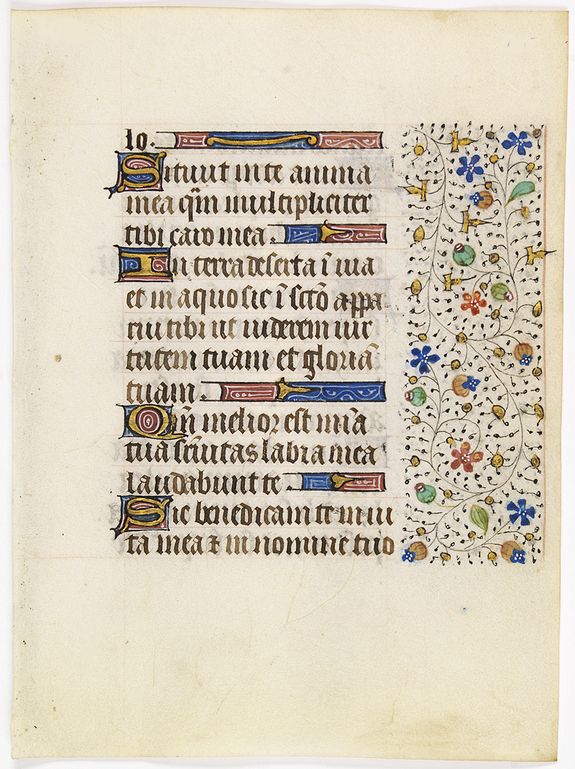 lo.
Sitiuit in te anima
mea qm̄ multipliciter
tibi caro mea.
In terra deserta ī uia
et inaquosic ī scto appa
rui tibi ut uiderem uir
tutem tuam et gloriā
tuam.
Qm̄ melior est mīa
tua sr̄ uitas labia mea
laudabunt te
Sic benedicam te in ui
ta mea ⁊ in nomine tuo